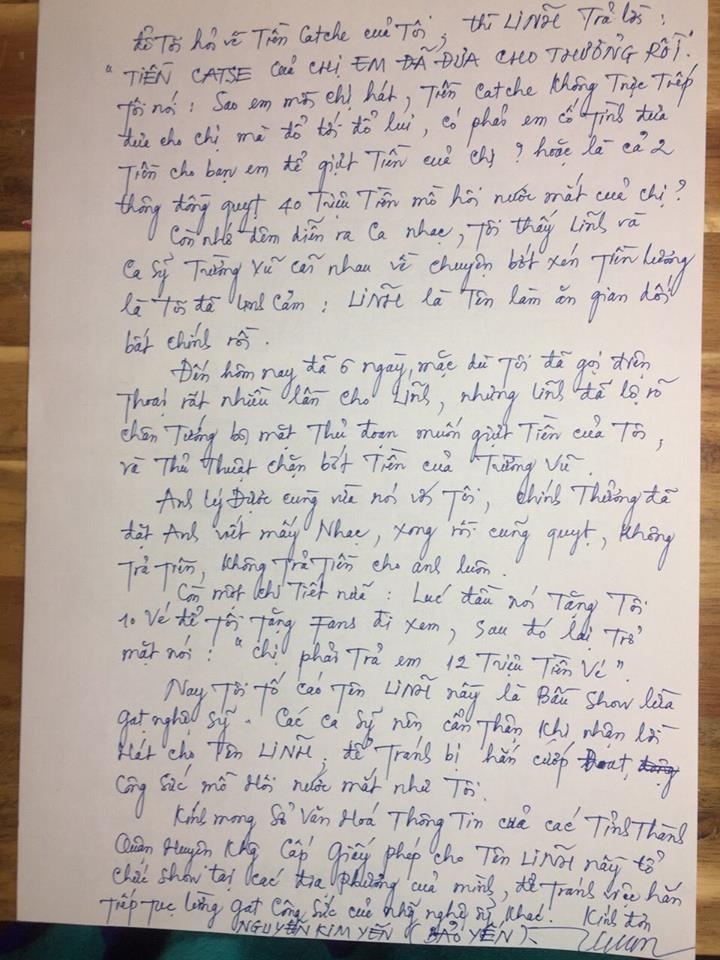 để Tôi hỏi về Tiền Catche của Tôi, thì LiNH Trả lời :
" TIỀN CATSE CỦA CHỊ EM ĐÃ ĐƯA CHO THƯỞNG RỒI".
Tôi nói : Sao em mời chị hát, Tiền Catche không Trực Tiếp
đưa cho chị mà đổ tới đổ lui, có phải em cố Tình đưa
Tiền cho bạn em để giựt Tiền của chị ? hoặc là cả 2
thông đồng quỵt 40 Triệu Tiền mồ hôi nước mắt của chị ?
Còn nhớ đêm diễn ra Ca nhạc, Tôi thấy Linh và
Ca Sỹ Trường Vũ cãi nhau về chuyện bớt xén Tiền lương
là Tôi đã Linh Cảm : LiNH là Tên làm ăn gian dối
bất chính rồi.
Đến hôm nay đã 6 ngày, mặc dù Tôi đã gọi điện
Thoại rất nhiều lần cho Linh, nhưng linh đã lộ rõ
chân Tướng bộ mặt Thủ đoạn muốn giựt Tiền của Tôi,
và Thủ Thuật chặn bớt Tiền của Trường Vũ.
Anh Lý Được cũng vừa nói với Tôi, chính Thưởng đã
đặt Anh viết mấy Nhạc, xong rồi cũng quỵt, không
Trả Tiền, Không Trả Tiền cho anh luôn.
Còn một chi Tiết nữa : Lúc đầu nói Tặng Tôi
10 Vé để Tôi Tặng Fans đi xem, sau đó lại Trở
mặt nói : " chị phải Trả em 12 Triệu Tiền Vé".
Nay Tôi Tố cáo Tên LiNH này là Bầu Show lừa
gạt nghệ sỹ. Các ca sỹ nên cẩn Thận Khi nhận lời
Hát cho Tên LiNH, để Tránh bị hắn cướp đoạt,
Công Sức mồ Hôi nước mắt như Tôi.
Kính mong Sở Văn Hoá Thông Tin của các Tỉnh Thành
Quận Huyện Khg Cấp Giấy phép cho Tên LiNH này tổ
chức show tại các địa phương của mình, để Tránh việc hắn
Tiếp Tục lường gạt Công Sức của những nghệ sỹ khác. Kính đơn
NGUYỄN KIM YẾN ( BẢO YẾN ).